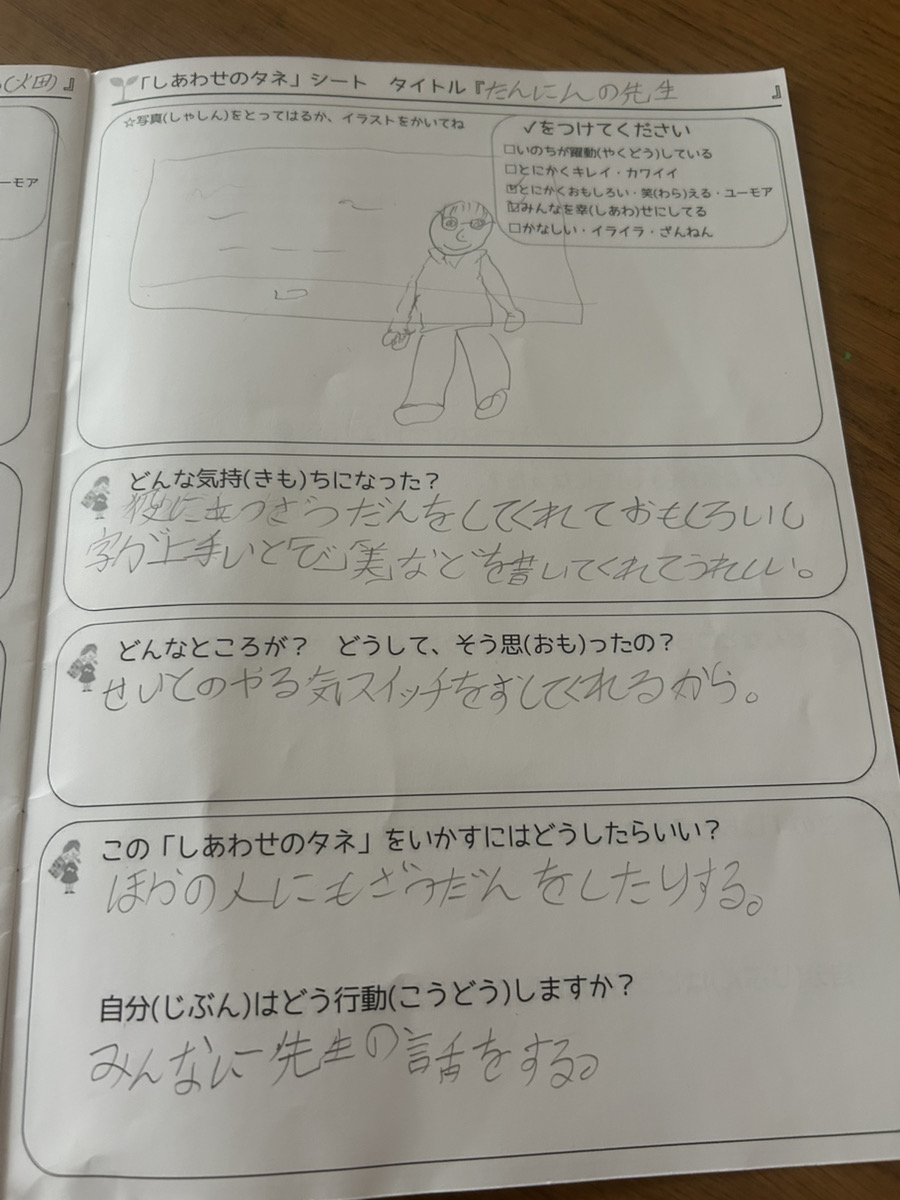 (太田)』
ーモア
「しあわせのタネ」シート　タイトル『たんにんの先生』
☆写真(しゃしん)をとってはるか、イラストをかいてね
✓をつけてください
□いのちが躍動(やくどう)している
□とにかくキレイ・カワイイ
☑とにかくおもしろい・笑(わら)える・ユーモア
☑みんなを幸(しあわ)せにしてる
□かなしい・イライラ・ざんねん
どんな気持(きも)ちになった？
役に立つざつだんをしてくれておもしろいし
字が上手いと「び」「美」などを書いてくれてうれしい。
どんなところが？　どうして、そう思(おも)ったの？
せいとのやる気スイッチをおしてくれるから。
この「しあわせのタネ」をいかすにはどうしたらいい？
ほかの人にもざつだんをしたりする。
自分(じぶん)はどう行動(こうどう)しますか？
みんなに先生の話をする。